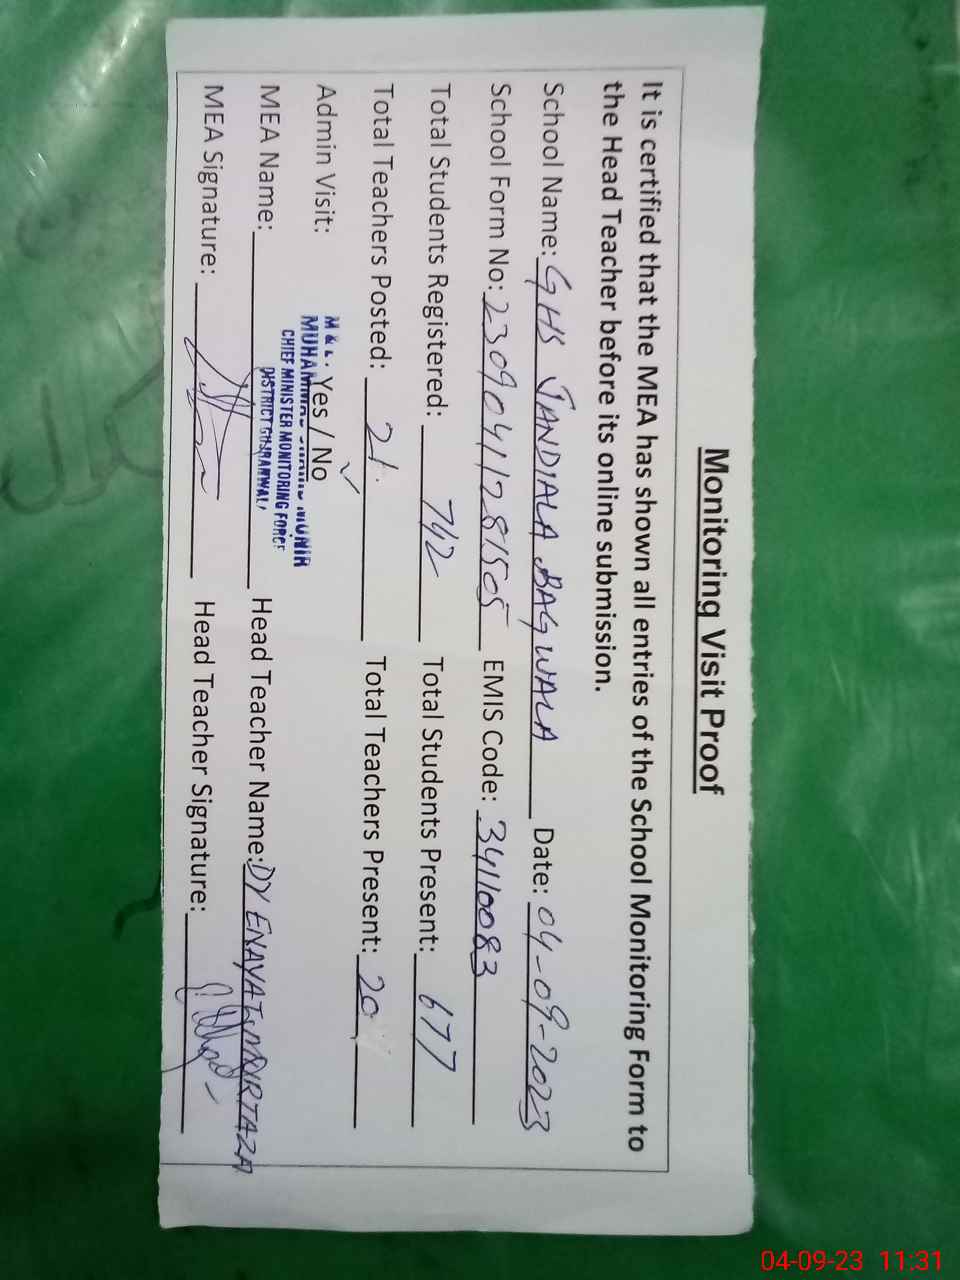 Monitoring Visit Proof
It is certified that the MEA has shown all entries of the School Monitoring Form to
the Head Teacher before its online submission.
School Name: GHS JANDIALA BAGWALA Date: 04-09-2023
School Form No: 23090411281505 EMIS Code: 34110083
Total Students Registered: 742 Total Students Present: 677
Total Teachers Posted: 21 Total Teachers Present: 20
Admin Visit: Yes / No ✓
MEA Name: Head Teacher Name: DY ENAYAT
MUHAMMAD MUNIR
CHIEF MINISTER MONITORING FORCE
DISTRICT GUJRANWALA
MEA Signature: Head Teacher Signature:
04-09-23 11:31